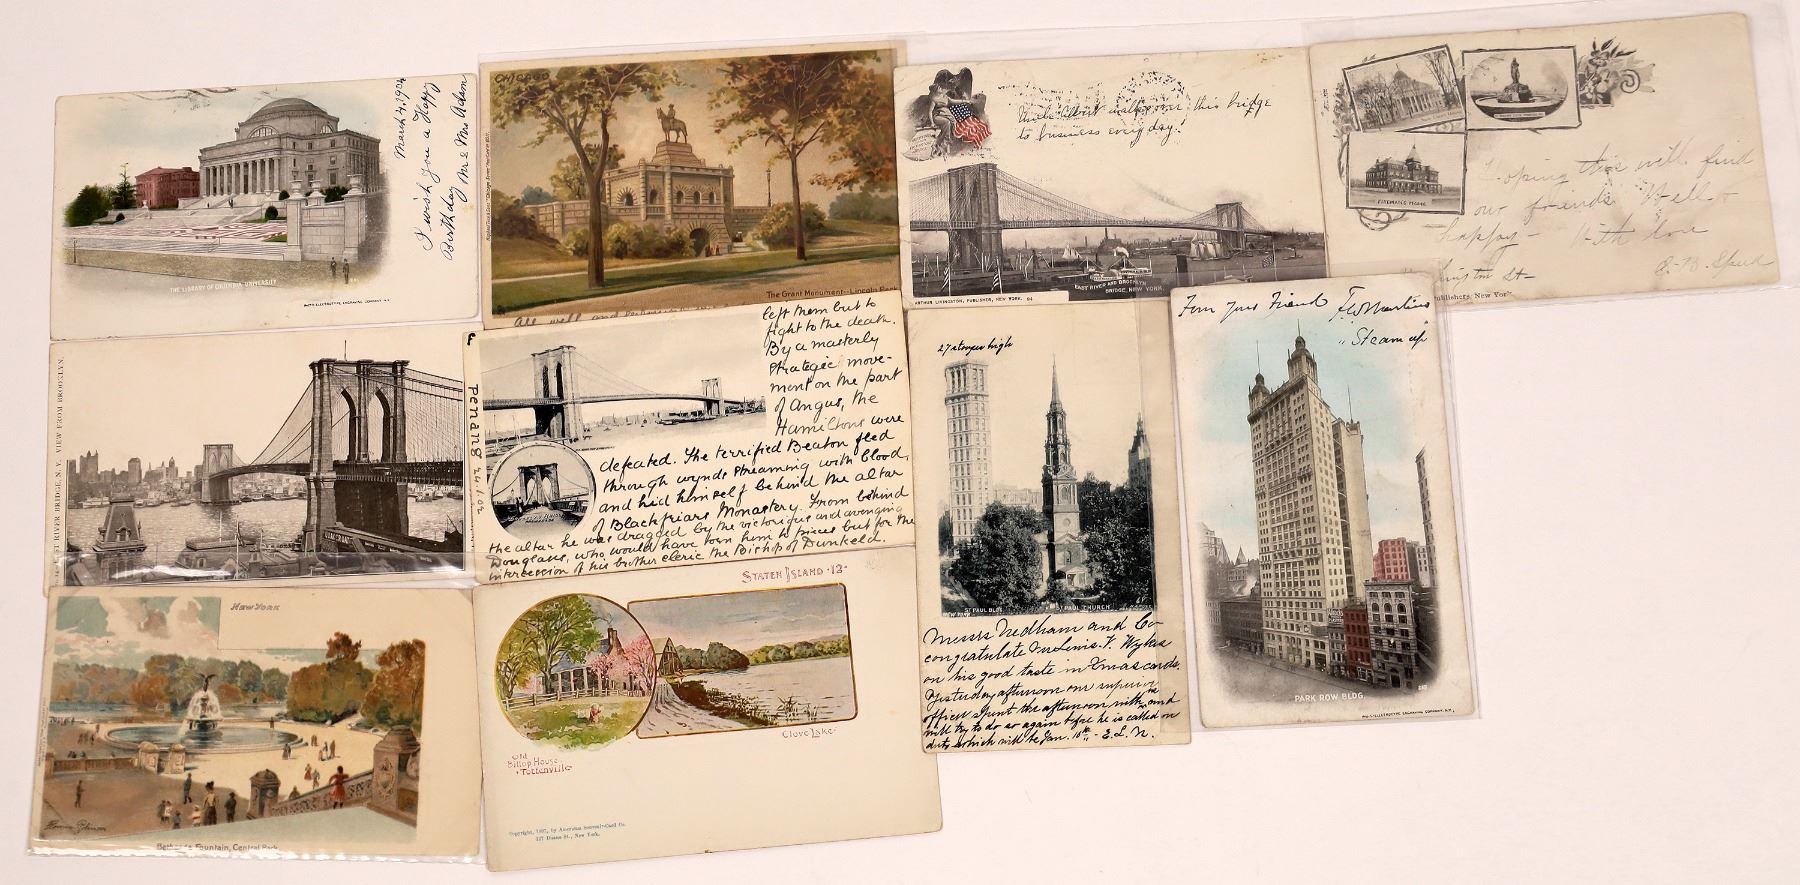 THE LIBRARY OF COLUMBIA UNIVERSITY
PHOTO-ELECTROTYPE ENGRAVING COMPANY, N.Y.
March 4, 1904
I wish you a Happy
Birthday
Mr & Mrs Adam
CHICAGO
The Grant Monument--Lincoln Park
All well and
Uncle Albert walks over this bridge
to business every day!
EAST RIVER AND BROOKLYN
BRIDGE, NEW YORK.
ARTHUR LIVINGSTON, PUBLISHER, NEW YORK. 94
FIREMAN'S HOME
Hoping this will find
our friends Well &
happy - With love
Publishers, New York
EAST RIVER BRIDGE, N. Y. VIEW FROM BROOKLYN.
Penang 24.1.02
left them but to
fight to the death.
By a masterly
strategic move-
ment on the part
of Angus, the
Hamiltons were
defeated. The terrified Beaton fled
through wynds streaming with blood,
and hid himself behind the altar
of Blackfriars Monastery. From behind
the altar he was dragged by the victorious and avenging
Douglans, who would have torn him to pieces but for the
intercession of his brother cleric the Bishop of Dunkeld.
27 stories high
ST PAUL BLDG.
NEW YORK
ST PAUL CHURCH
Messrs Nedham and Co
congratulate Mr Lewis. F. Wykes
on his good taste in Xmas cards.
Yesterday afternoon our superior
officer spent the afternoon with and
will try to do so again before he is called on
duty which will be Jan. 10th - E.L.N.
From Your Friend
"Steam up"
PARK ROW BLDG.
PHOTO-ELECTROTYPE ENGRAVING COMPANY, N.Y.
New York
Bethesda Fountain, Central Park
STATEN ISLAND -12-
Old
Billop House
Tottenville
Clove Lake
Copyright, 1897, by American Souvenir-Card Co.
127 Duane St., New York.